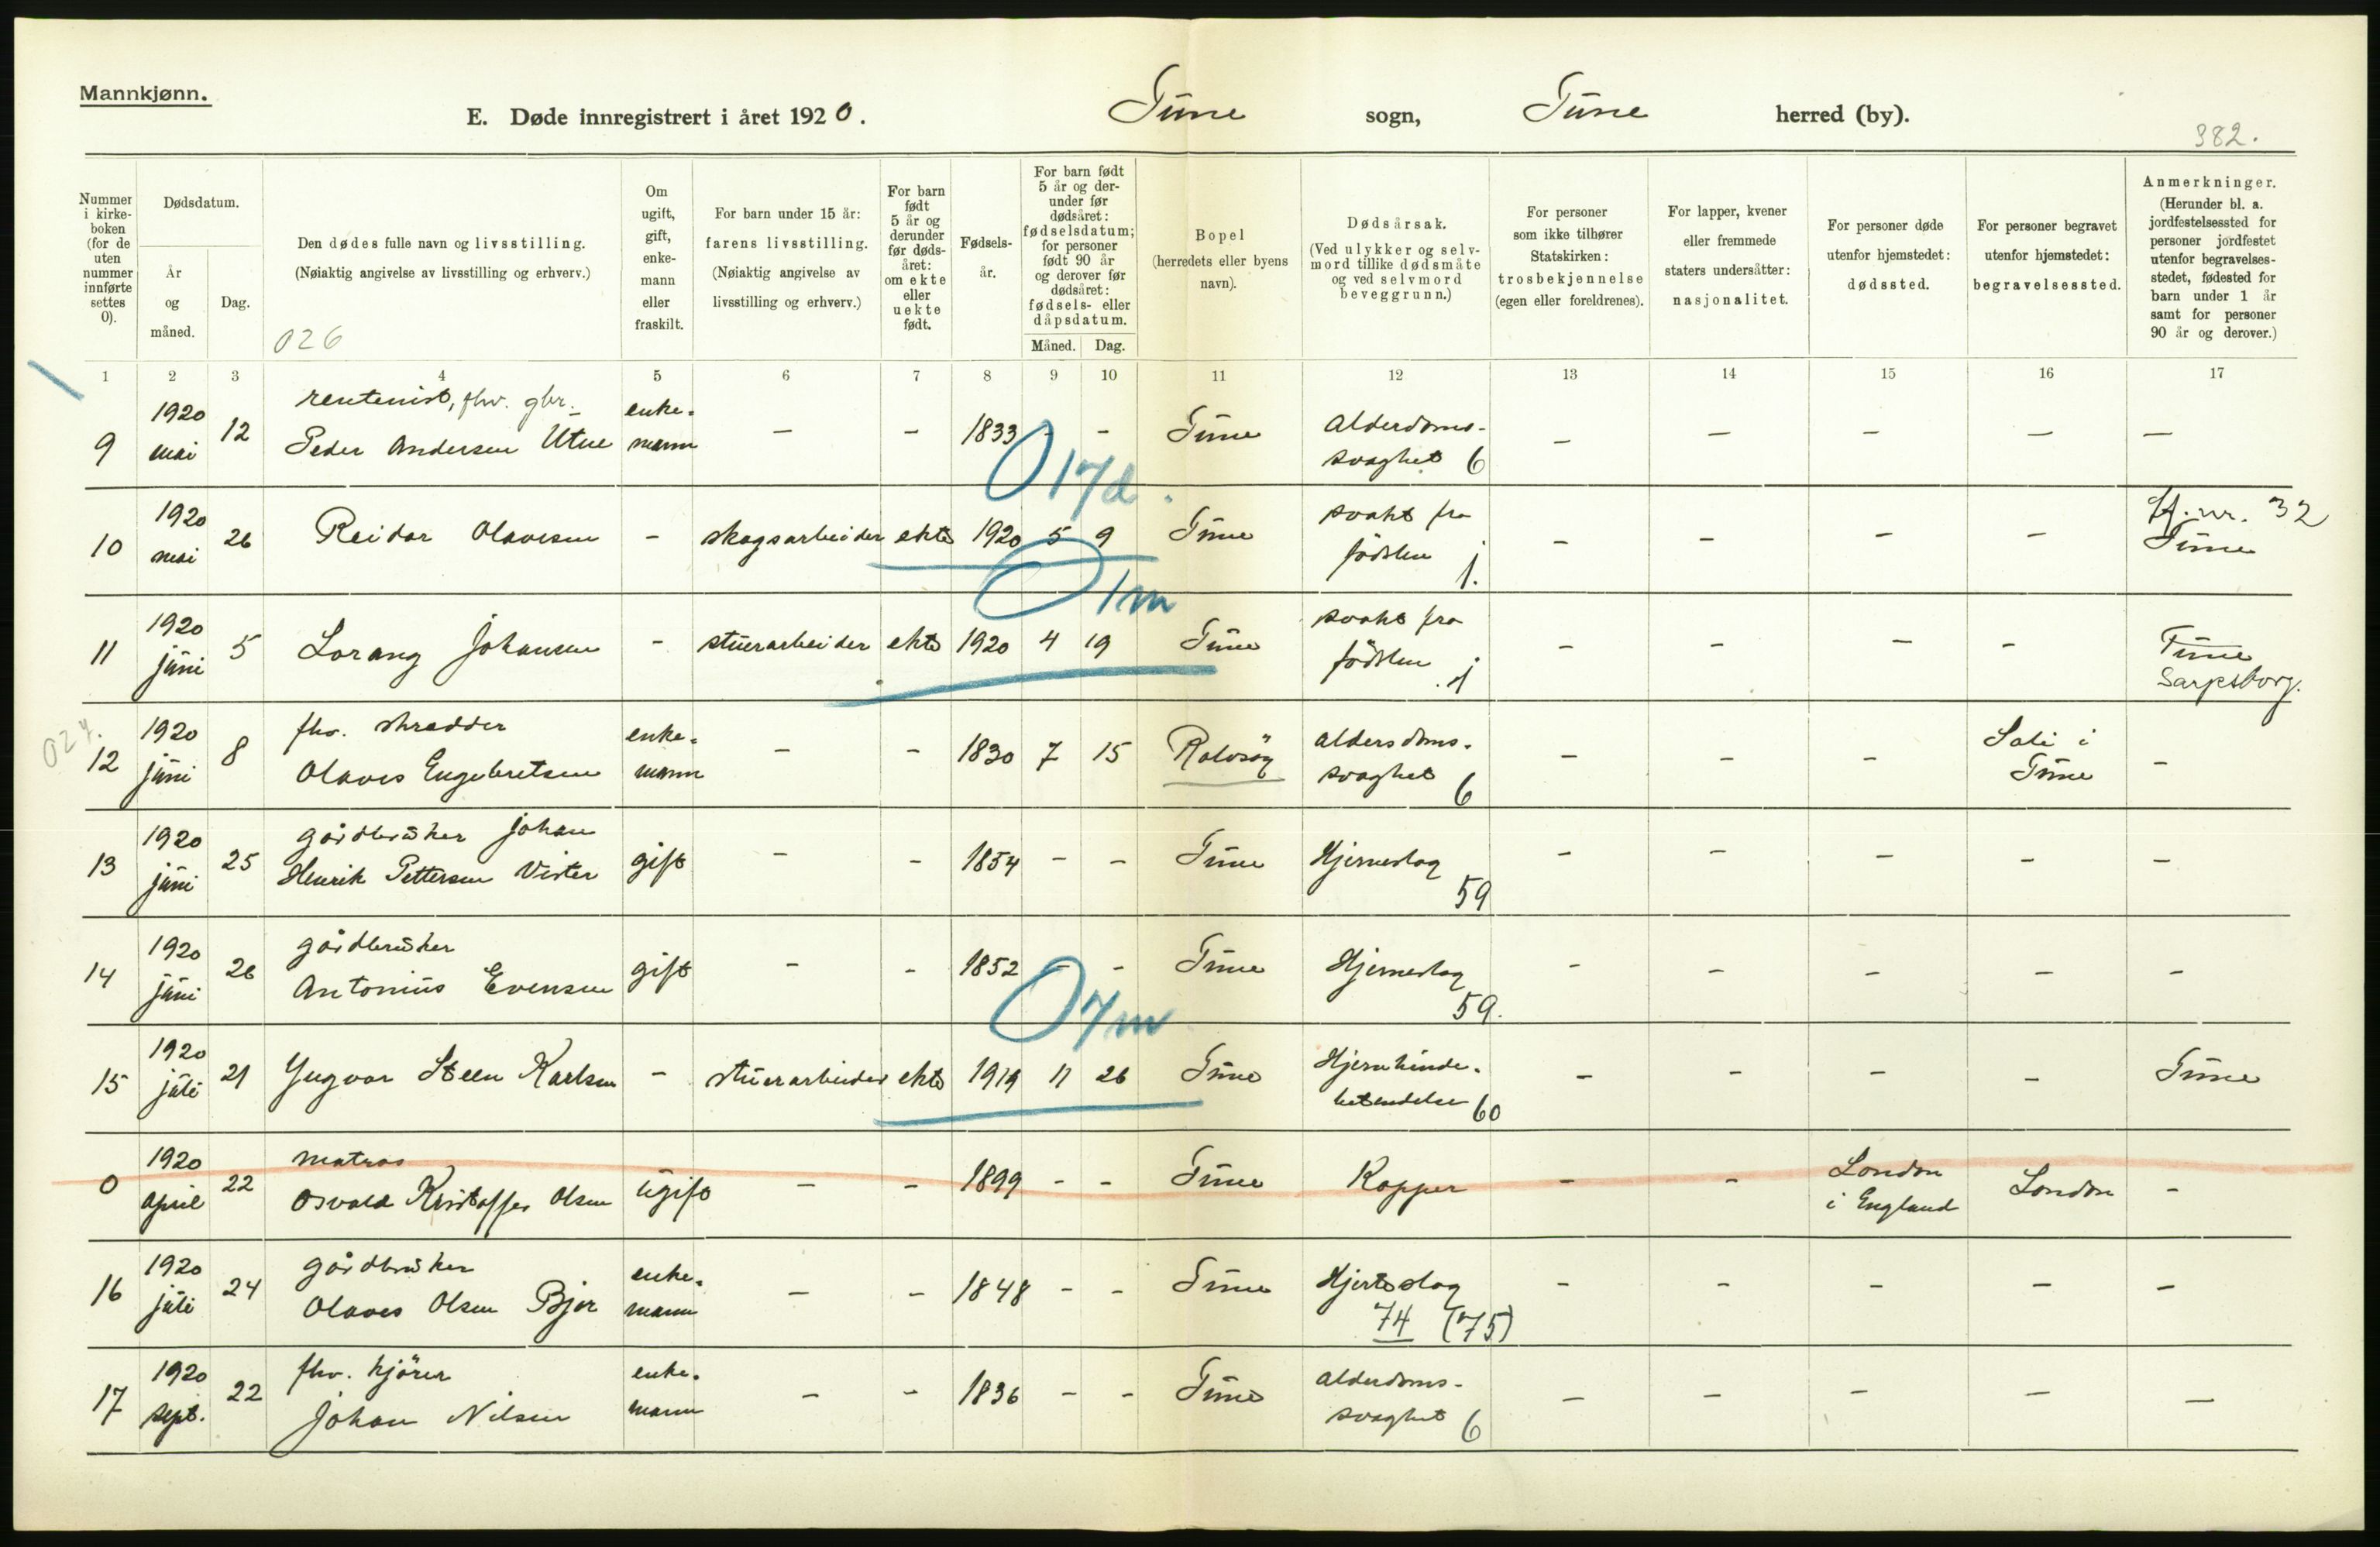 Mannkjønn.
E. Døde innregistrert i året 1920. Tune sogn, Tune herred (by).
382.
Nummer i kirke- boken (for de uten nummer innførte settes 0).
Dødsdatum.
År og måned.
Dag.
Den dødes fulle navn og livsstilling.
(Nøiaktig angivelse av livsstilling og erhverv.)
026
Om ugift, gift, enke- mann eller fraskilt.
For barn under 15 år: farens livsstilling. (Nøiaktig angivelse av livsstilling og erhverv.)
For barn født 5 år og derunder før døds- året: om ekte eller uekte født.
Fødsels- år.
For barn født 5 år og der- under før dødsåret: fødselsdatum; for personer født 90 år og derover før dødsåret: fødsels- eller dåpsdatum.
Måned. Dag.
Bopel (herredets eller byens navn).
Dødsårsak. (Ved ulykker og selv- mord tillike dødsmåte og ved selvmord beveggrunn.)
For personer som ikke tilhører Statskirken: trosbekjennelse (egen eller foreldrenes).
For lapper, kvener eller fremmede staters undersåtter: nasjonalitet.
For personer døde utenfor hjemstedet: dødssted.
For personer begravet utenfor hjemstedet: begravelsessted.
Anmerkninger. (Herunder bl. a. jordfestelsessted for personer jordfestet utenfor begravelses- stedet, fødested for barn under 1 år samt for personer 90 år og derover.)
1 2 3 4 5 6 7 8 9 10 11 12 13 14 15 16 17
9 1920 mai 12 rentenist, fhv. gbr. Peder Andersen Utne enke- mann - - 1833 - - Tune Alderdoms- svaghet 6 - - - - -
0 17 d.
10 1920 mai 26 Reidar Olavesen - skogsarbeider ekte 1920 5 9 Tune svakt fra fødslen 1. - - - - Hj. nr. 32 Tune
0 1 m
11 1920 juni 5 Lorang Johansen - stuerarbeider ekte 1920 4 19 Tune svakt fra fødslen 1 - - - - Tune Sarpsborg.
024.
12 1920 juni 8 fhv. skredder Olaves Engebretsen enke- mann - - 1830 7 15 Rolvsøy aldersdoms- svaghet 6 - - - Soli i Tune -
13 1920 juni 25 gårdbruker Johan Henrik Pettersen Vister gift - - 1854 - - Tune Hjerneslag 59 - - - - -
14 1920 juni 26 gårdbruker Antonius Evensen gift - - 1852 - - Tune Hjerneslag 59. - - - - -
0 7 m
15 1920 juli 21 Yngvar Steen Karlsen - stuerarbeider ekte 1919 11 26 Tune Hjernehinde- betendelse 60 - - - - Tune
0 1920 april 22 matros Osvald Kristoffer Olsen ugift - - 1899 - - Tune Kopper - - London i England London -
16 1920 juli 24 gårdbruker Olaves Olsen Bjør enke- mann - - 1848 - - Tune Hjerteslag 74 (75) - - - - -
17 1920 sept. 22 fhv. kjører Johan Nilsen enke- mann - - 1836 - - Tune alderdoms- svaghet 6 - - - - -